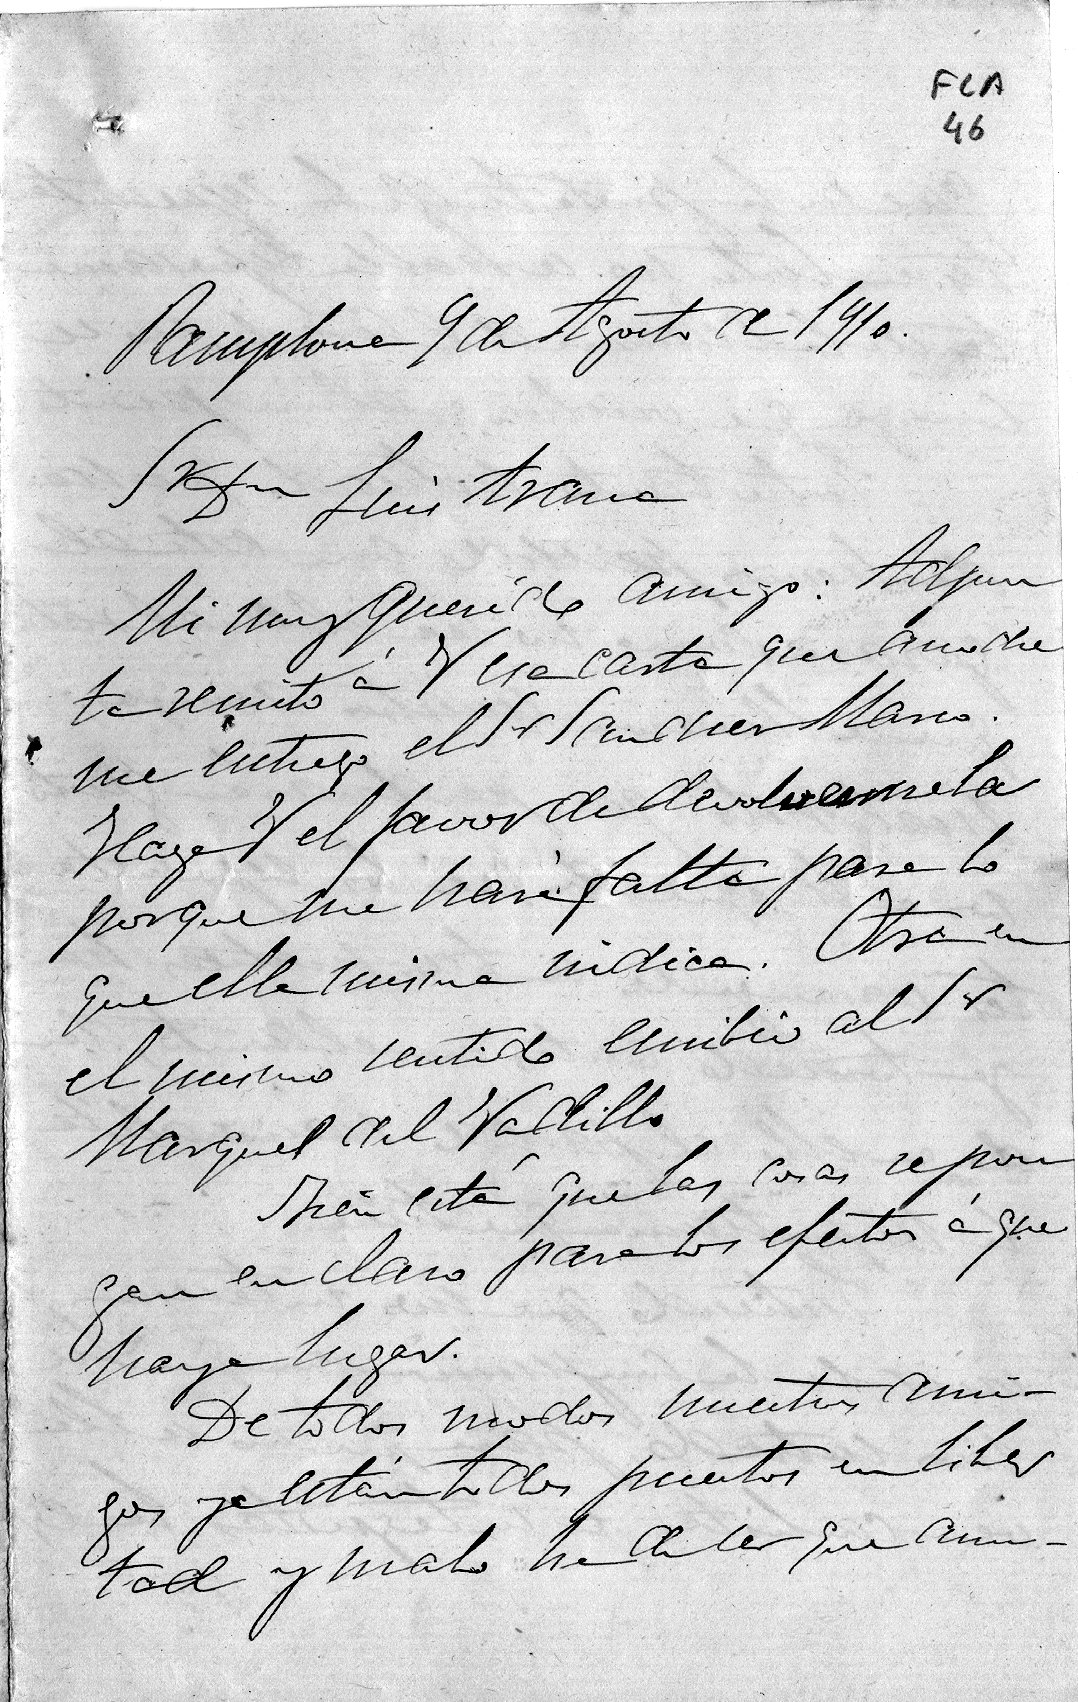 FLA
46
Pamplona 9 de Agosto de 1910.
Sr Dn Luis Arana
Mi muy querido amigo: Adjun
ta remito á V una carta que anoche
me entregó el Sr Sanchez Marco.
Haga V el favor de devolvermela
porque me hará falta para lo
que ella misma indica. Otra en
el mismo sentido escribió al Sr
Marqués del Vadillo
Bien está que las cosas se pon
gan en claro para los efectos á que
haya lugar.
De todos modos nuestros ami-
gos ya están todos puestos en liber
tad y malo ha de ser que aun-